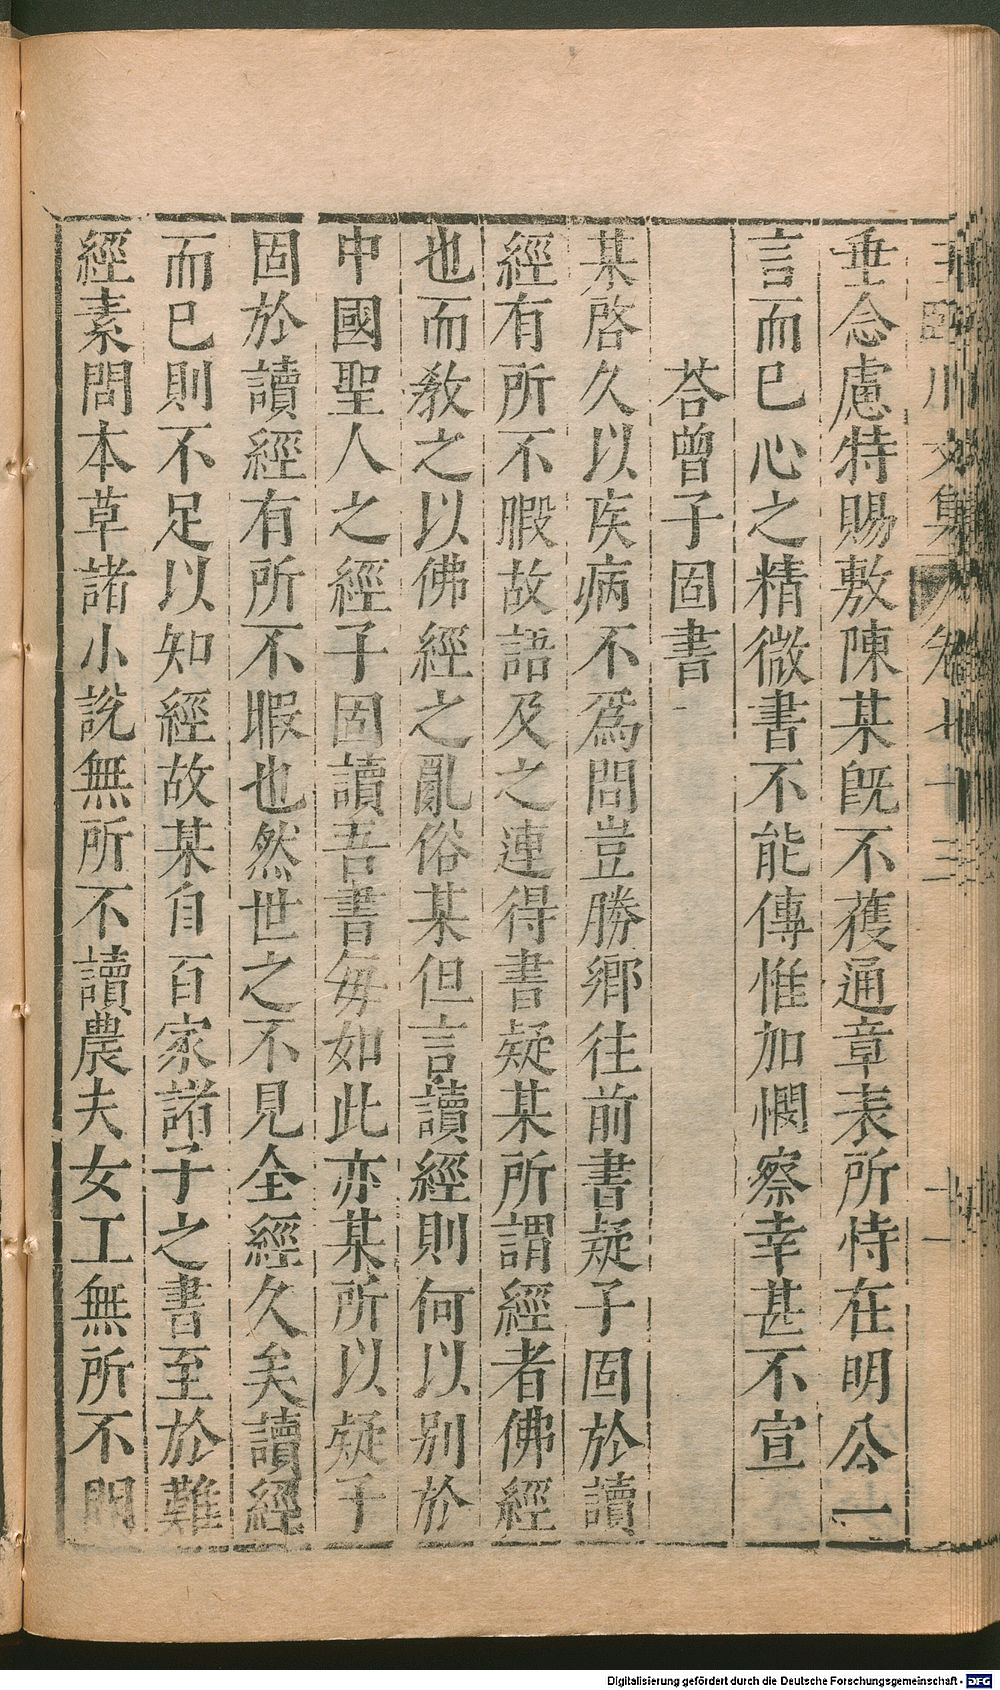 垂念慮特賜敷陳某旣不獲通章表所恃在明公一
言而已心之精微書不能傳惟加憫察幸甚不宣
荅曾子固書
某啓久以疾病不爲問豈勝鄉往前書疑子固於讀
經有所不暇故語及之連得書疑某所謂經者佛經
也而敎之以佛經之亂俗某但言讀經則何以別於
中國聖人之經子固讀吾書每如此亦某所以疑子
固於讀經有所不暇也然世之不見全經久矣讀經
而已則不足以知經故某自百家諸子之書至於難
經素問本草諸小說無所不讀農夫女工無所不問
川文集 卷七十三
Digitalisierung gefördert durch die Deutsche Forschungsgemeinschaft - DFG